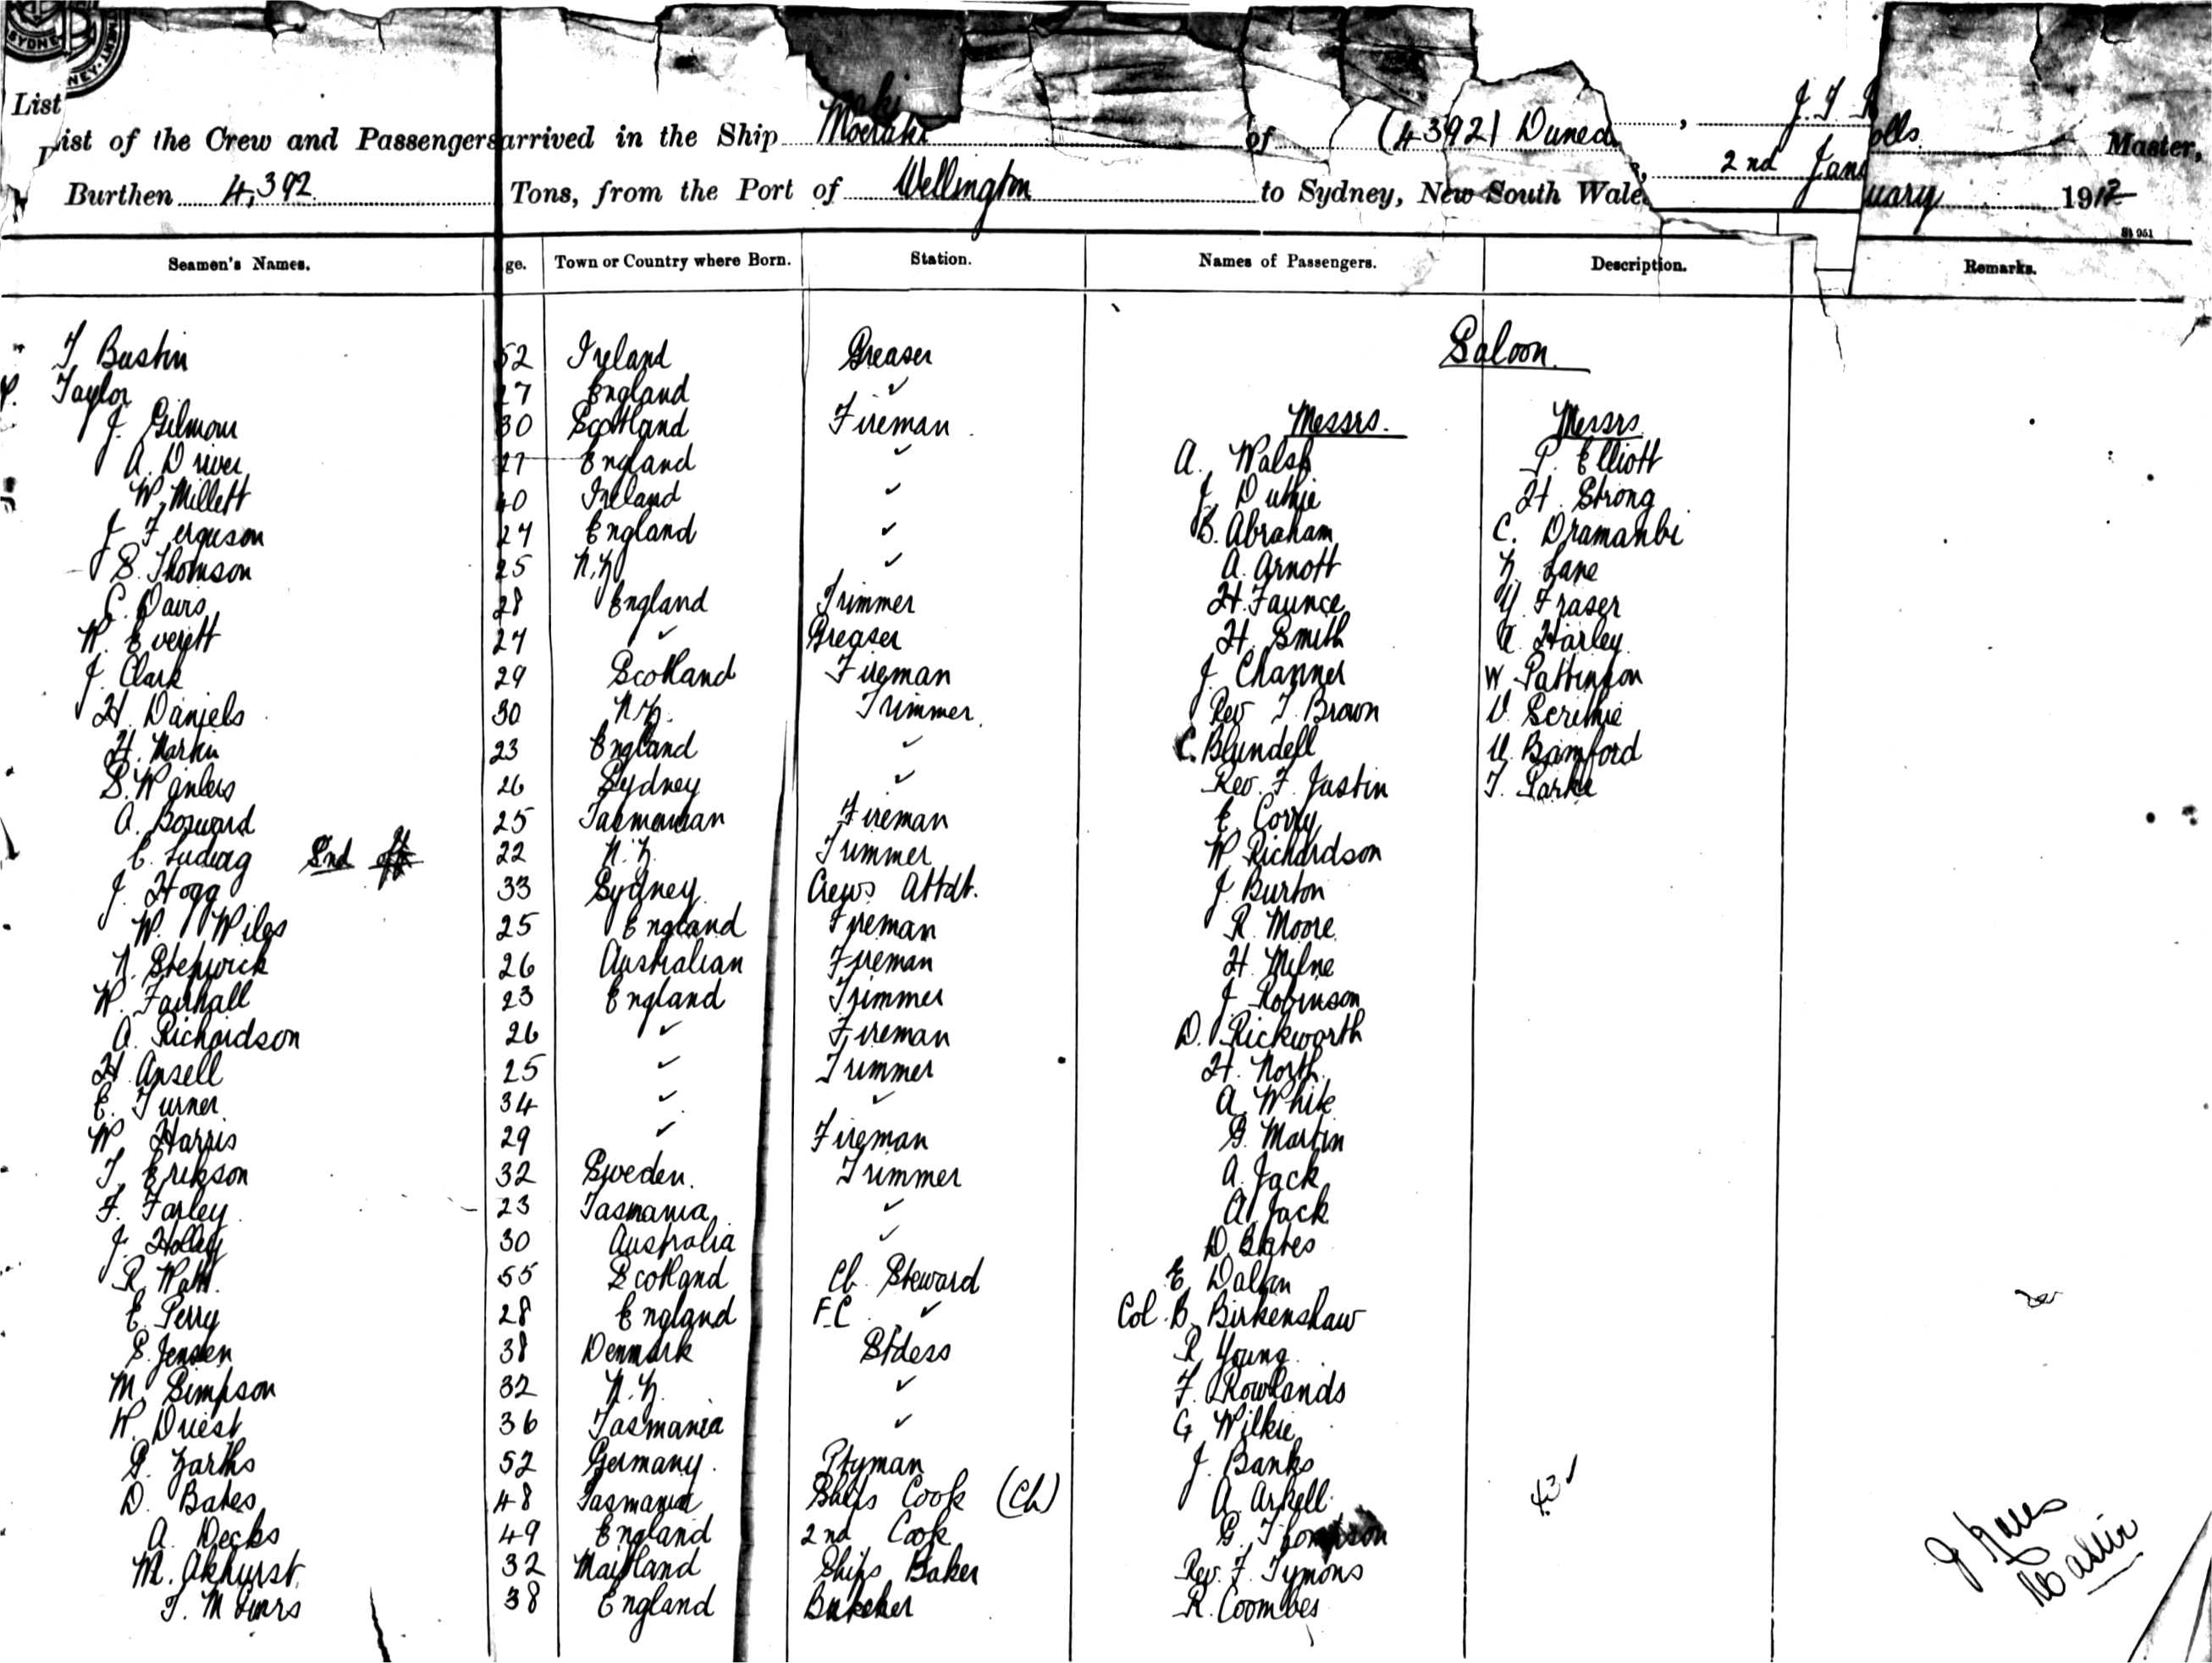 List
List of the Crew and Passengers arrived in the Ship Moeraki of (4392) Duned , J. T. Rolls Master,
Burthen 4,392 Tons, from the Port of Wellington to Sydney, New South Wales, 2nd January 1912
Seamen's Names. Age. Town or Country where Born. Station. Names of Passengers. Description. Remarks.
Saloon.
T Bustin 52 Ireland Greaser
Taylor 27 England ✓
J. Gilmour 30 Scotland Fireman Messrs. Messrs
A. Driver 27 England ✓ A. Walsh P. Elliott
W. Millett 40 Ireland ✓ J. Duthie H. Strong
J Ferguson 24 England ✓ B. Abraham C. Dramanbi
S. Thomson 25 N.Z ✓ A. Arnott Lane
C. Davis 28 England Trimmer H. Faunce Y. Fraser
W. Everett 24 ✓ Greaser H. Smith Harley
J. Clark 29 Scotland Fireman J. Channer W Pattinson
H. Daniels 30 N.Z. Trimmer. Rev T. Brown Scrithie
H. Martin 23 England ✓ C. Blundell Bamford
S. 26 Sydney ✓ Rev. F. Justin T. Parke
A. Bosward 25 Tasmanian Fireman E. Corry
C. Ludwig 22 N.Z. Trimmer W Richardson
J. Hogg 33 Sydney Crews Attdt. J. Burton
W. Wiles 25 England Fireman R. Moore
Stepwick 26 Australian Fireman H. Milne
W. Fairhall 23 England Trimmer J. Robinson
A. Richardson 26 ✓ Fireman D. Rickworth
H Ansell 25 ✓ Trimmer H. North
E. Turner 34 ✓ ✓ A. White
W Harris 29 ✓ Fireman G. Martin
T. Erikson 32 Sweden. Trimmer A. Jack
F. Farley 23 Tasmania ✓ A. Jack
J. Holley 30 Australia ✓ D. Slates
R. Watt. 55 Scotland Ch. Steward E. Dalton
E. Perry 28 England F.C. ✓ Col. B. Birkenshaw
S. Jensen 38 Denmark Stdess R. Young
M. Simpson 32 N.Z. ✓ F. Rowlands
W. Driest 36 Tasmania ✓ G Wilkie
G. Zarths 52 Germany. Ptyman J. Banks
D. Bates 48 Tasmania Ships Cook (Ch) A. Arkell 43 ✓
A. Decks 49 England 2nd Cook G. Thompson
M. Akhurst. 32 Maitland Ships Baker Rev. F. Tymons
T. 38 England Butcher R. Coombes